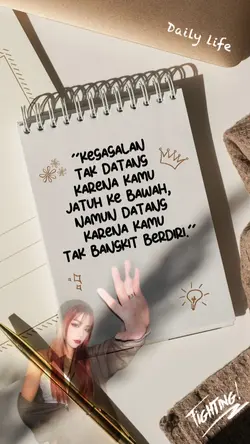 Daily Life
"KEGAGALAN
TAK DATANG
KARENA KAMU
JATUH KE BAWAH,
NAMUN DATANG
KARENA KAMU
TAK BANGKIT BERDIRI."
FIGHTING!